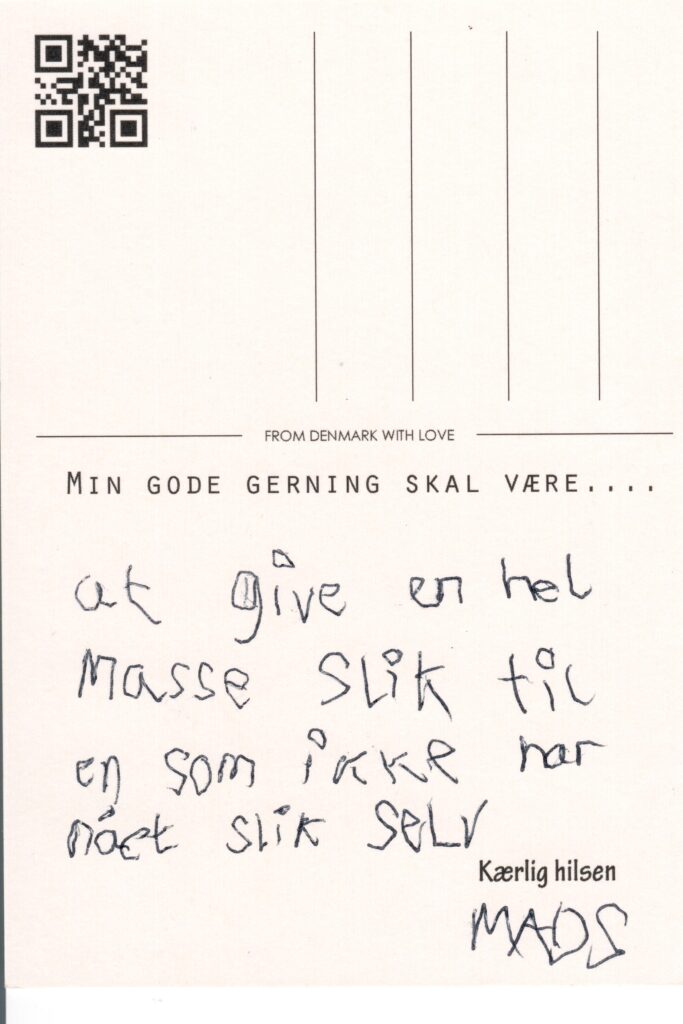 FROM DENMARK WITH LOVE
MIN GODE GERNING SKAL VÆRE....
at give en hel
Masse slik til
en som ikke har
nået slik selv
Kærlig hilsen
MADS